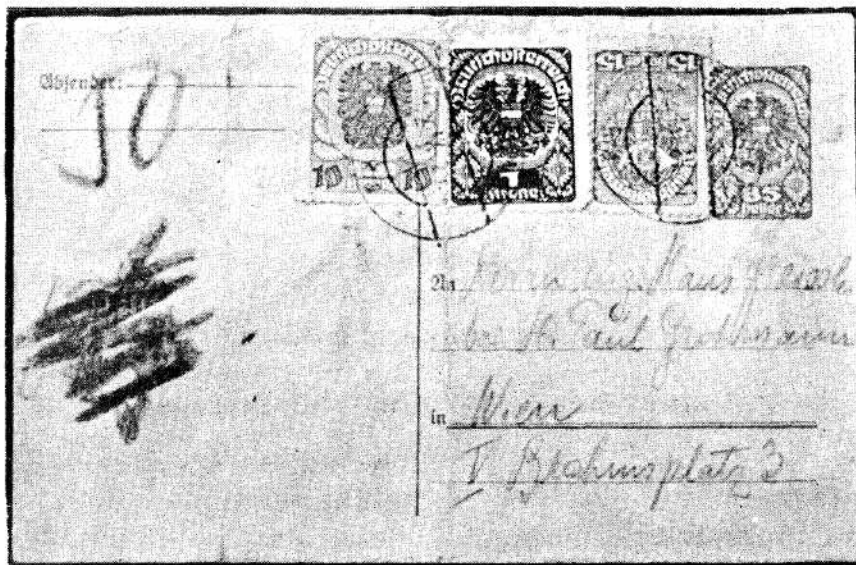 Absender:
50
Deutschösterreich
10 10
Deutschösterreich
1
Krone
15 15
Deutschösterreich
35
An Herrn Ing. Hans
bei H. Paul Grohmann
in Wien
V Brahmsplatz 3